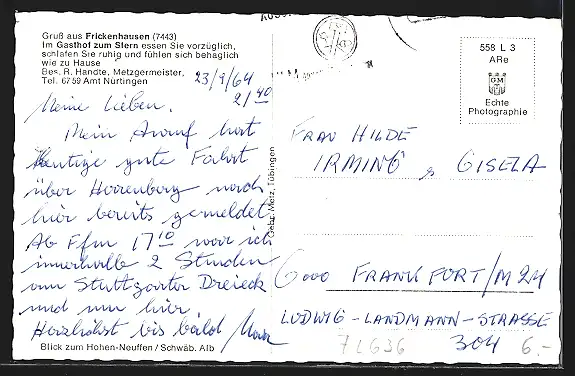 Gruß aus Frickenhausen (7443)
Im Gasthof zum Stern essen Sie vorzüglich,
schlafen Sie ruhig und fühlen sich behaglich
wie zu Hause
Bes. R. Handte, Metzgermeister,
Tel. 67 59 Amt Nürtingen
23/9/64
21 40
Meine Lieben.
Mein Anruf hat
heutige gute Fahrt
über Herrenberg nach
hier bereits gemeldet
Ab Ffm 17 10 war ich
innerhalb 2 Stunden
am Stuttgarter Dreieck
und nun hier.
Herzlichst bis bald
Blick zum Hohen-Neuffen / Schwäb. Alb
Gebr. Metz, Tübingen
558 L 3
ARe
GM
Echte
Photographie
FRAU HILDE
IRMING & GISELA
6000 FRANKFORT/M 24
LUDWIG-LANDMANN-STRASSE
304
72636
6.-